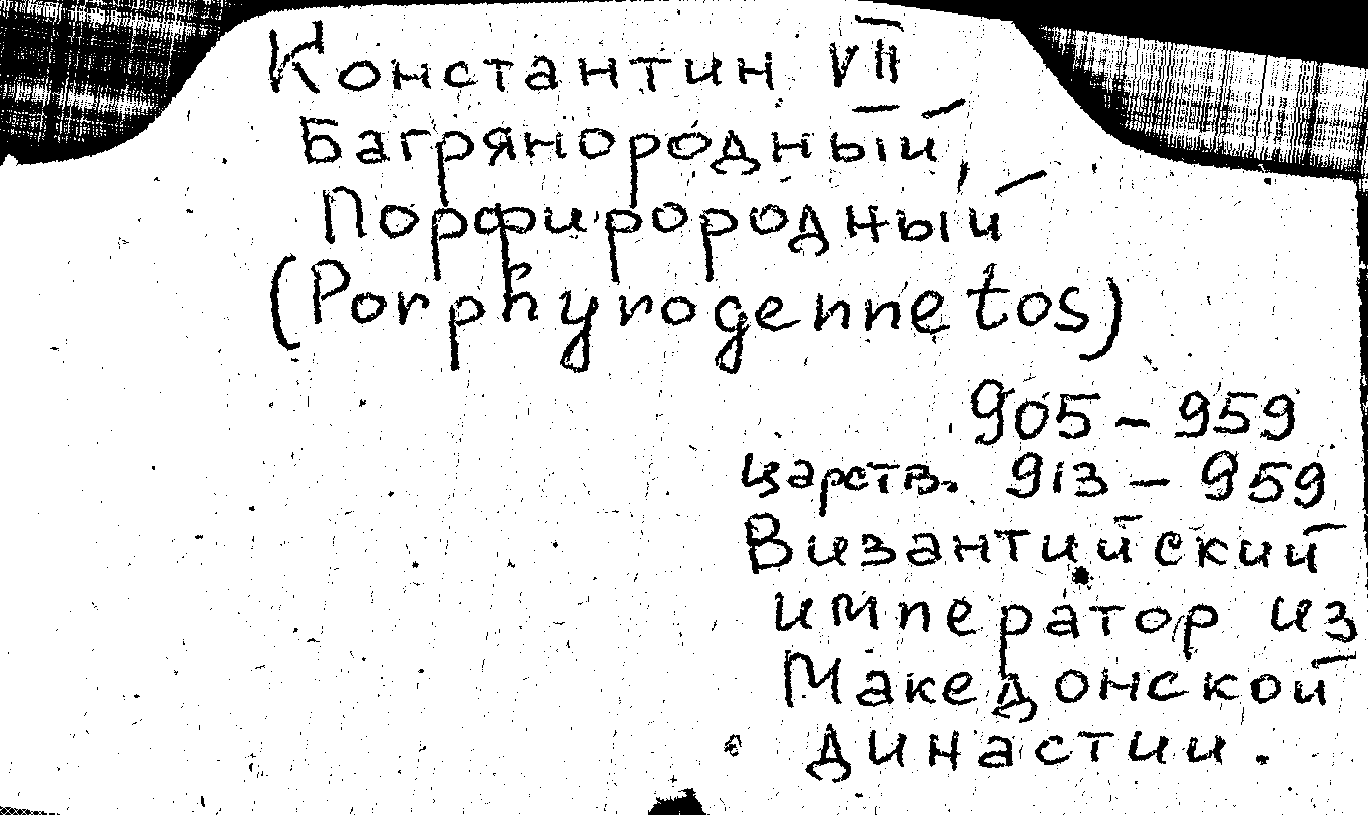 Константин VII
Багрянородный,
Порфирородный
(Porphyrogennetos)
905 – 959
царств. 913 – 959
Византийский
император из
Македонской
династии.